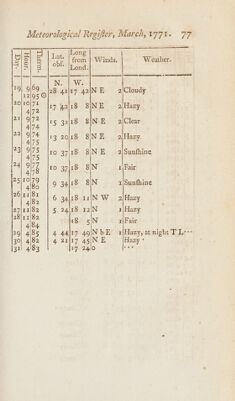 Meteorological Regiſter, March, 1771. 77
Day. Hour. Therm. Lat. obſ. Long from Lond. Winds. Weather.
N. W.
19 9 69 28 41 17 42 N E 2 Cloudy
12 95
20 10 71 17 42 18 8 N E 2 Hazy
4 72
21 9 72 15 31 18 8 N E 2 Clear
4 74
22 9 74 13 20 18 8 N E 2 Hazy
4 75
23 9 75 10 37 18 8 N E 2 Sunſhine
4 75
24 9 77 10 37 18 8 N 1 Fair
4 78
25 10 79 9 34 18 8 N 1 Sunſhine
4 80
26 11 81 6 34 18 11 N W 2 Hazy
4 82
27 11 82 5 24 18 12 N 1 Hazy
28 11 82 18 5 N 1 Fair
4 84
29 4 85 4 44 17 49 N b E 1 Hazy, at night T L
30 4 82 4 21 17 45 N E Hazy
31 4 83 17 24